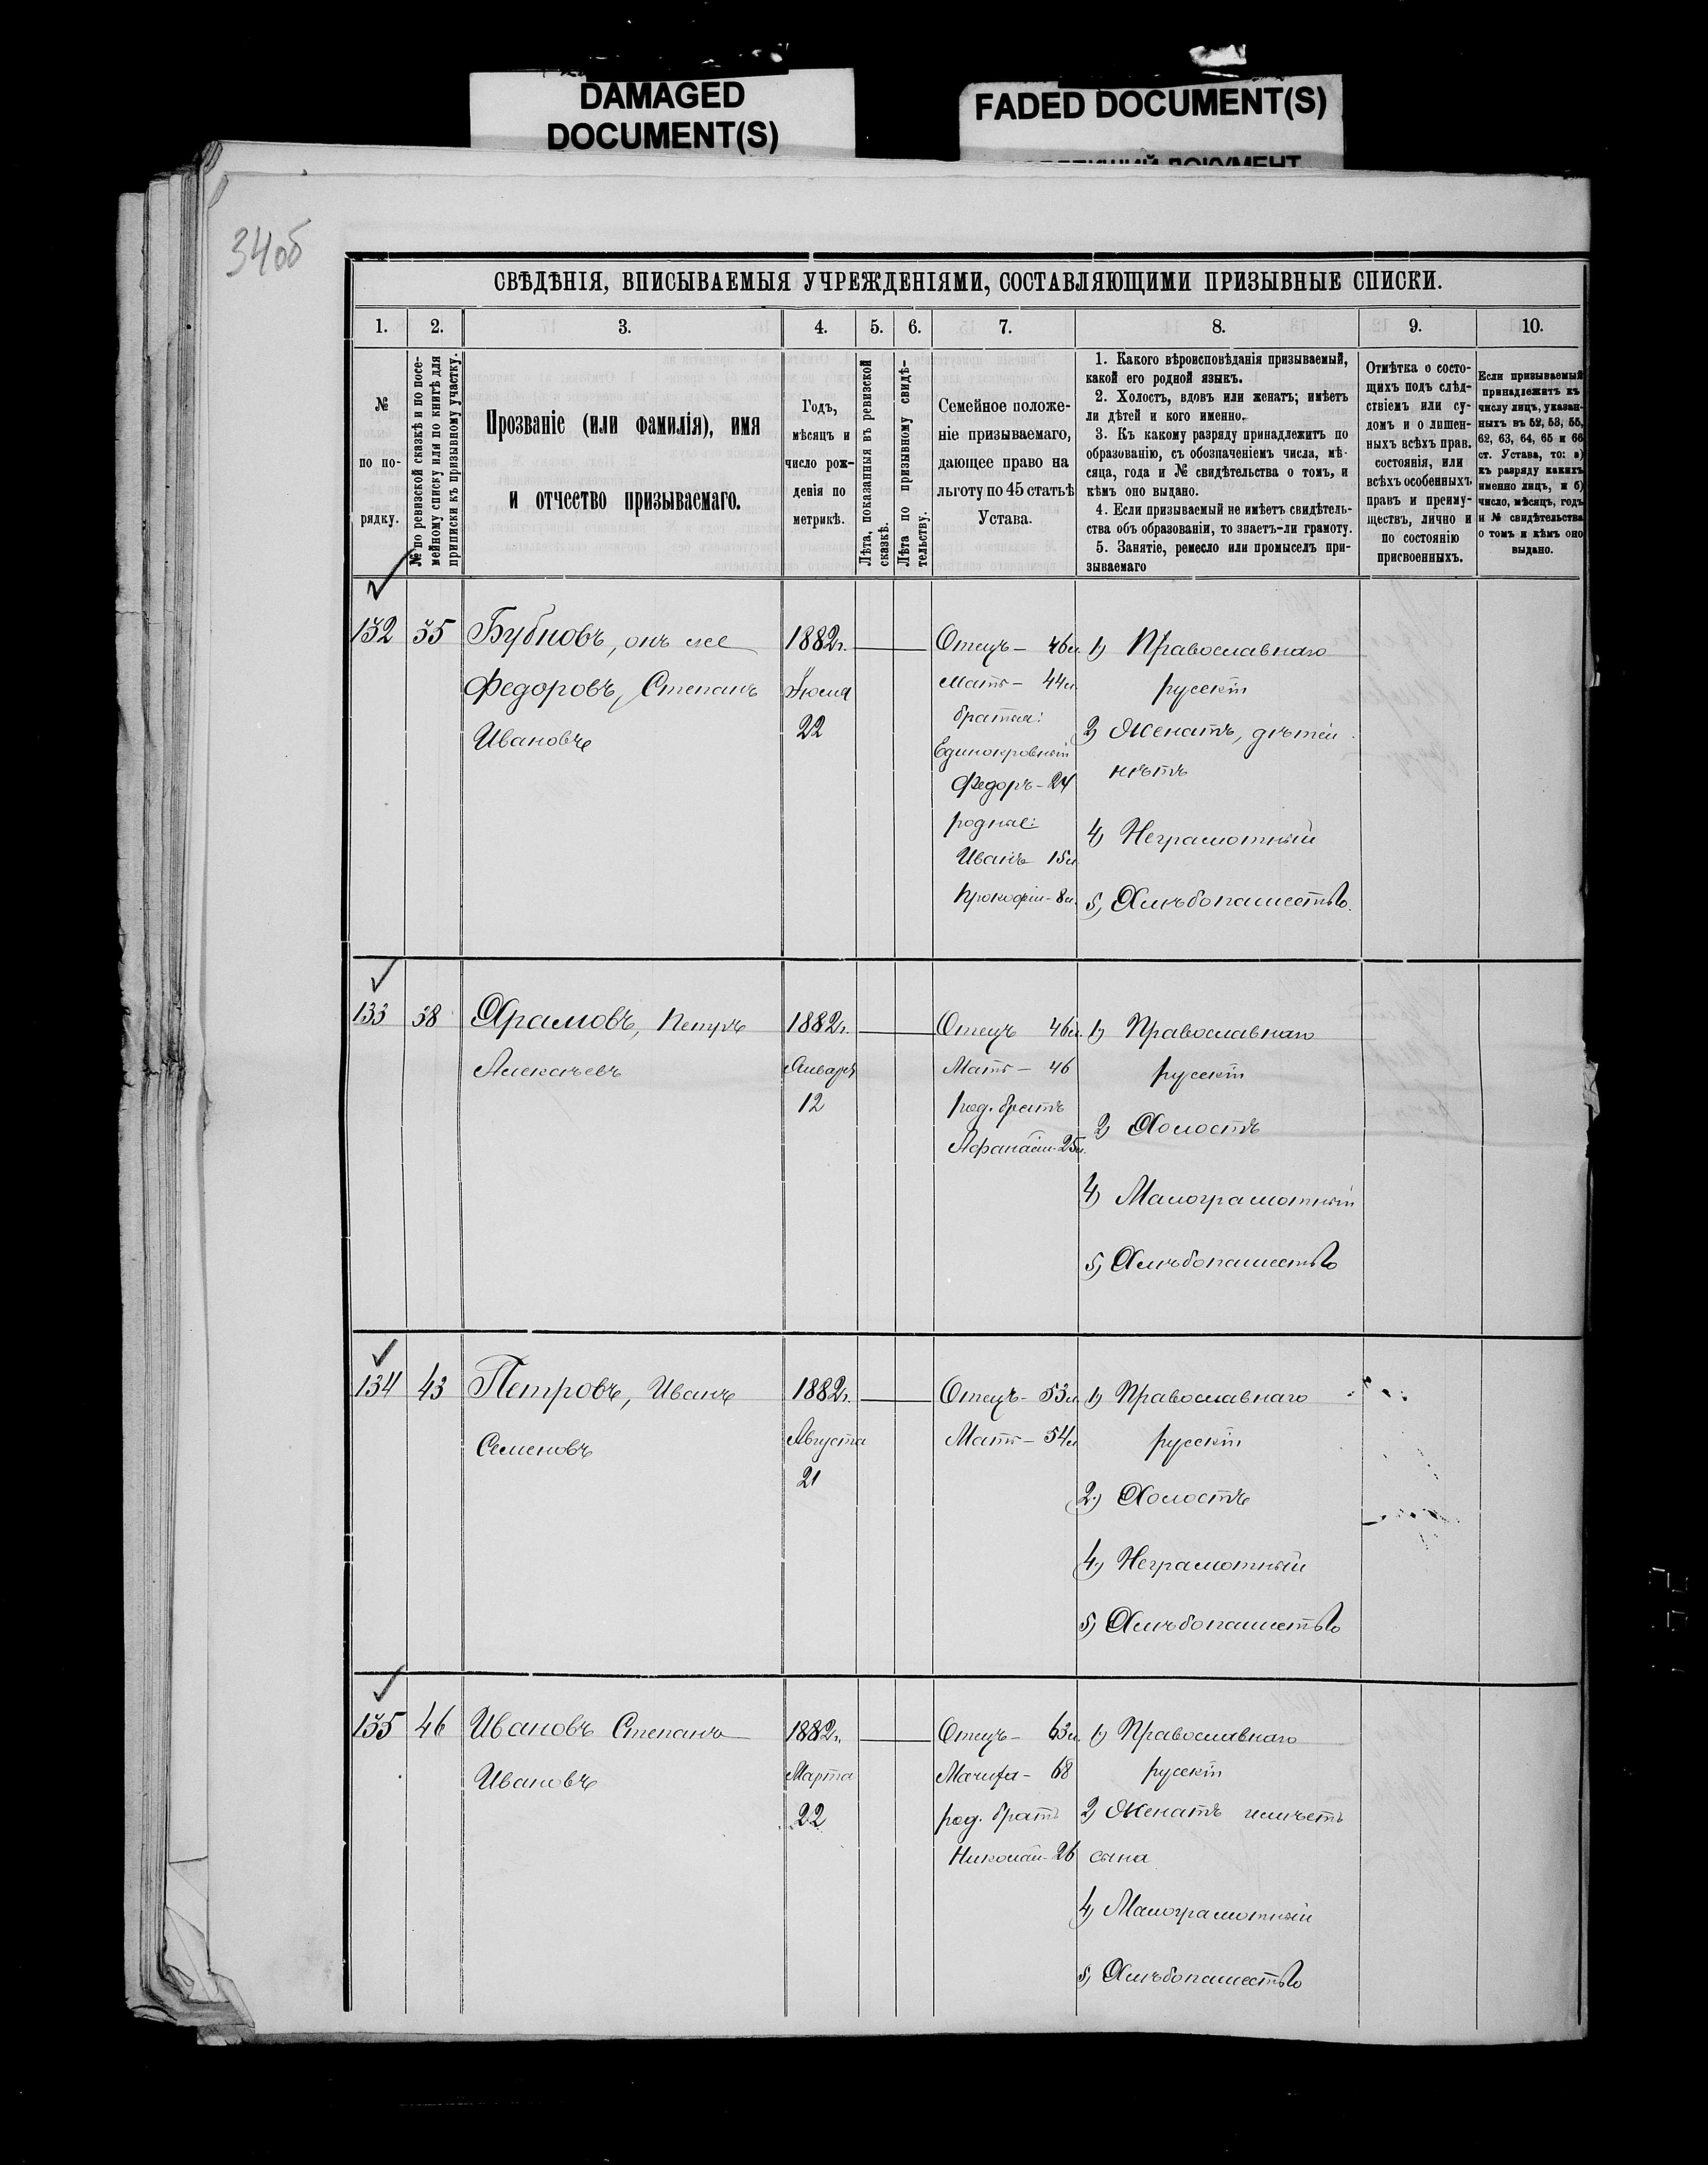 DAMAGED
DOCUMENT(S)
FADED DOCUMENT(S)
34об
СВѢДѢНІЯ, ВПИСЫВАЕМЫЯ УЧРЕЖДЕНІЯМИ, СОСТАВЛЯЮЩИМИ ПРИЗЫВНЫЕ СПИСКИ.
1. 2. 3. 4. 5. 6. 7. 8. 9. 10.
№
по по-
рядку.
№ по ревизской сказкѣ и по посе-
мейному списку или по книгѣ для
приписки къ призывному участку.
Прозваніе (или фамилія), имя
и отчество призываемаго.
Годъ,
мѣсяцъ и
число рож-
денія по
метрикѣ.
Лѣта, показанныя въ ревизской
сказкѣ.
Лѣта по призывному свидѣ-
тельству.
Семейное положе-
ніе призываемаго,
дающее право на
льготу по 45 статьѣ
Устава.
1. Какого вѣроисповѣданія призываемый,
какой его родной языкъ.
2. Холостъ, вдовъ или женатъ; имѣетъ
ли дѣтей и кого именно.
3. Къ какому разряду принадлежитъ по
образованію, съ обозначеніемъ числа, мѣ-
сяца, года и № свидѣтельства о томъ, и
кѣмъ оно выдано.
4. Если призываемый не имѣетъ свидѣтель-
ства объ образованіи, то знаетъ-ли грамоту.
5. Занятіе, ремесло или промыселъ при-
зываемаго
Отмѣтка о состо-
щихъ подъ слѣд-
ствіемъ или су-
домъ и о лишен-
ныхъ всѣхъ прав.
состоянія, или
всѣхъ особенныхъ
правъ и преиму-
ществъ, лично и
по состоянію
присвоенныхъ.
Если призываемый
принадлежитъ къ
числу лицъ, указан-
ныхъ въ 52, 53, 55,
62, 63, 64, 65 и 66
ст. Устава, то: а)
къ разряду какихъ
именно лицъ, и б)
число, мѣсяцъ, годъ
и № свидѣтельства
о томъ и кѣмъ оно
выдано.
132 35 Бубновъ, онъ же
Федоровъ, Степанъ
Ивановъ
1882г.
Іюля
22
Отецъ - 46л.
Мать - 44л
братья:
Единокровный
Федоръ - 24
родные:
Иванъ 15л
Прокофій - 8л.
1) Православнаго
русскій
2) Женатъ, дѣтей
нѣтъ
4) Неграмотный
5) Хлѣбопашество.
133 38 Храмовъ, Петръ
Алексѣевъ
1882г.
Января
12
Отецъ 46л.
Мать - 46
род. братъ
Афанасій - 25л.
1) Православнаго
русскій
2) Холостъ
4) Малограмотный
5) Хлѣбопашество
134 43 Петровъ, Иванъ
Семеновъ
1882г.
Августа
21
Отецъ - 53л
Мать - 54л
1) Православнаго
русскій
2) Холостъ
4) Неграмотный
5) Хлѣбопашество
135 46 Ивановъ Степанъ
Ивановъ
1882г.
Марта
22
Отецъ - 63л.
Мачиха - 68
род. братъ
Николай - 26
1) Православнаго
русскій
2) Женатъ имѣетъ
сына
4) Малограмотный
5) Хлѣбопашество